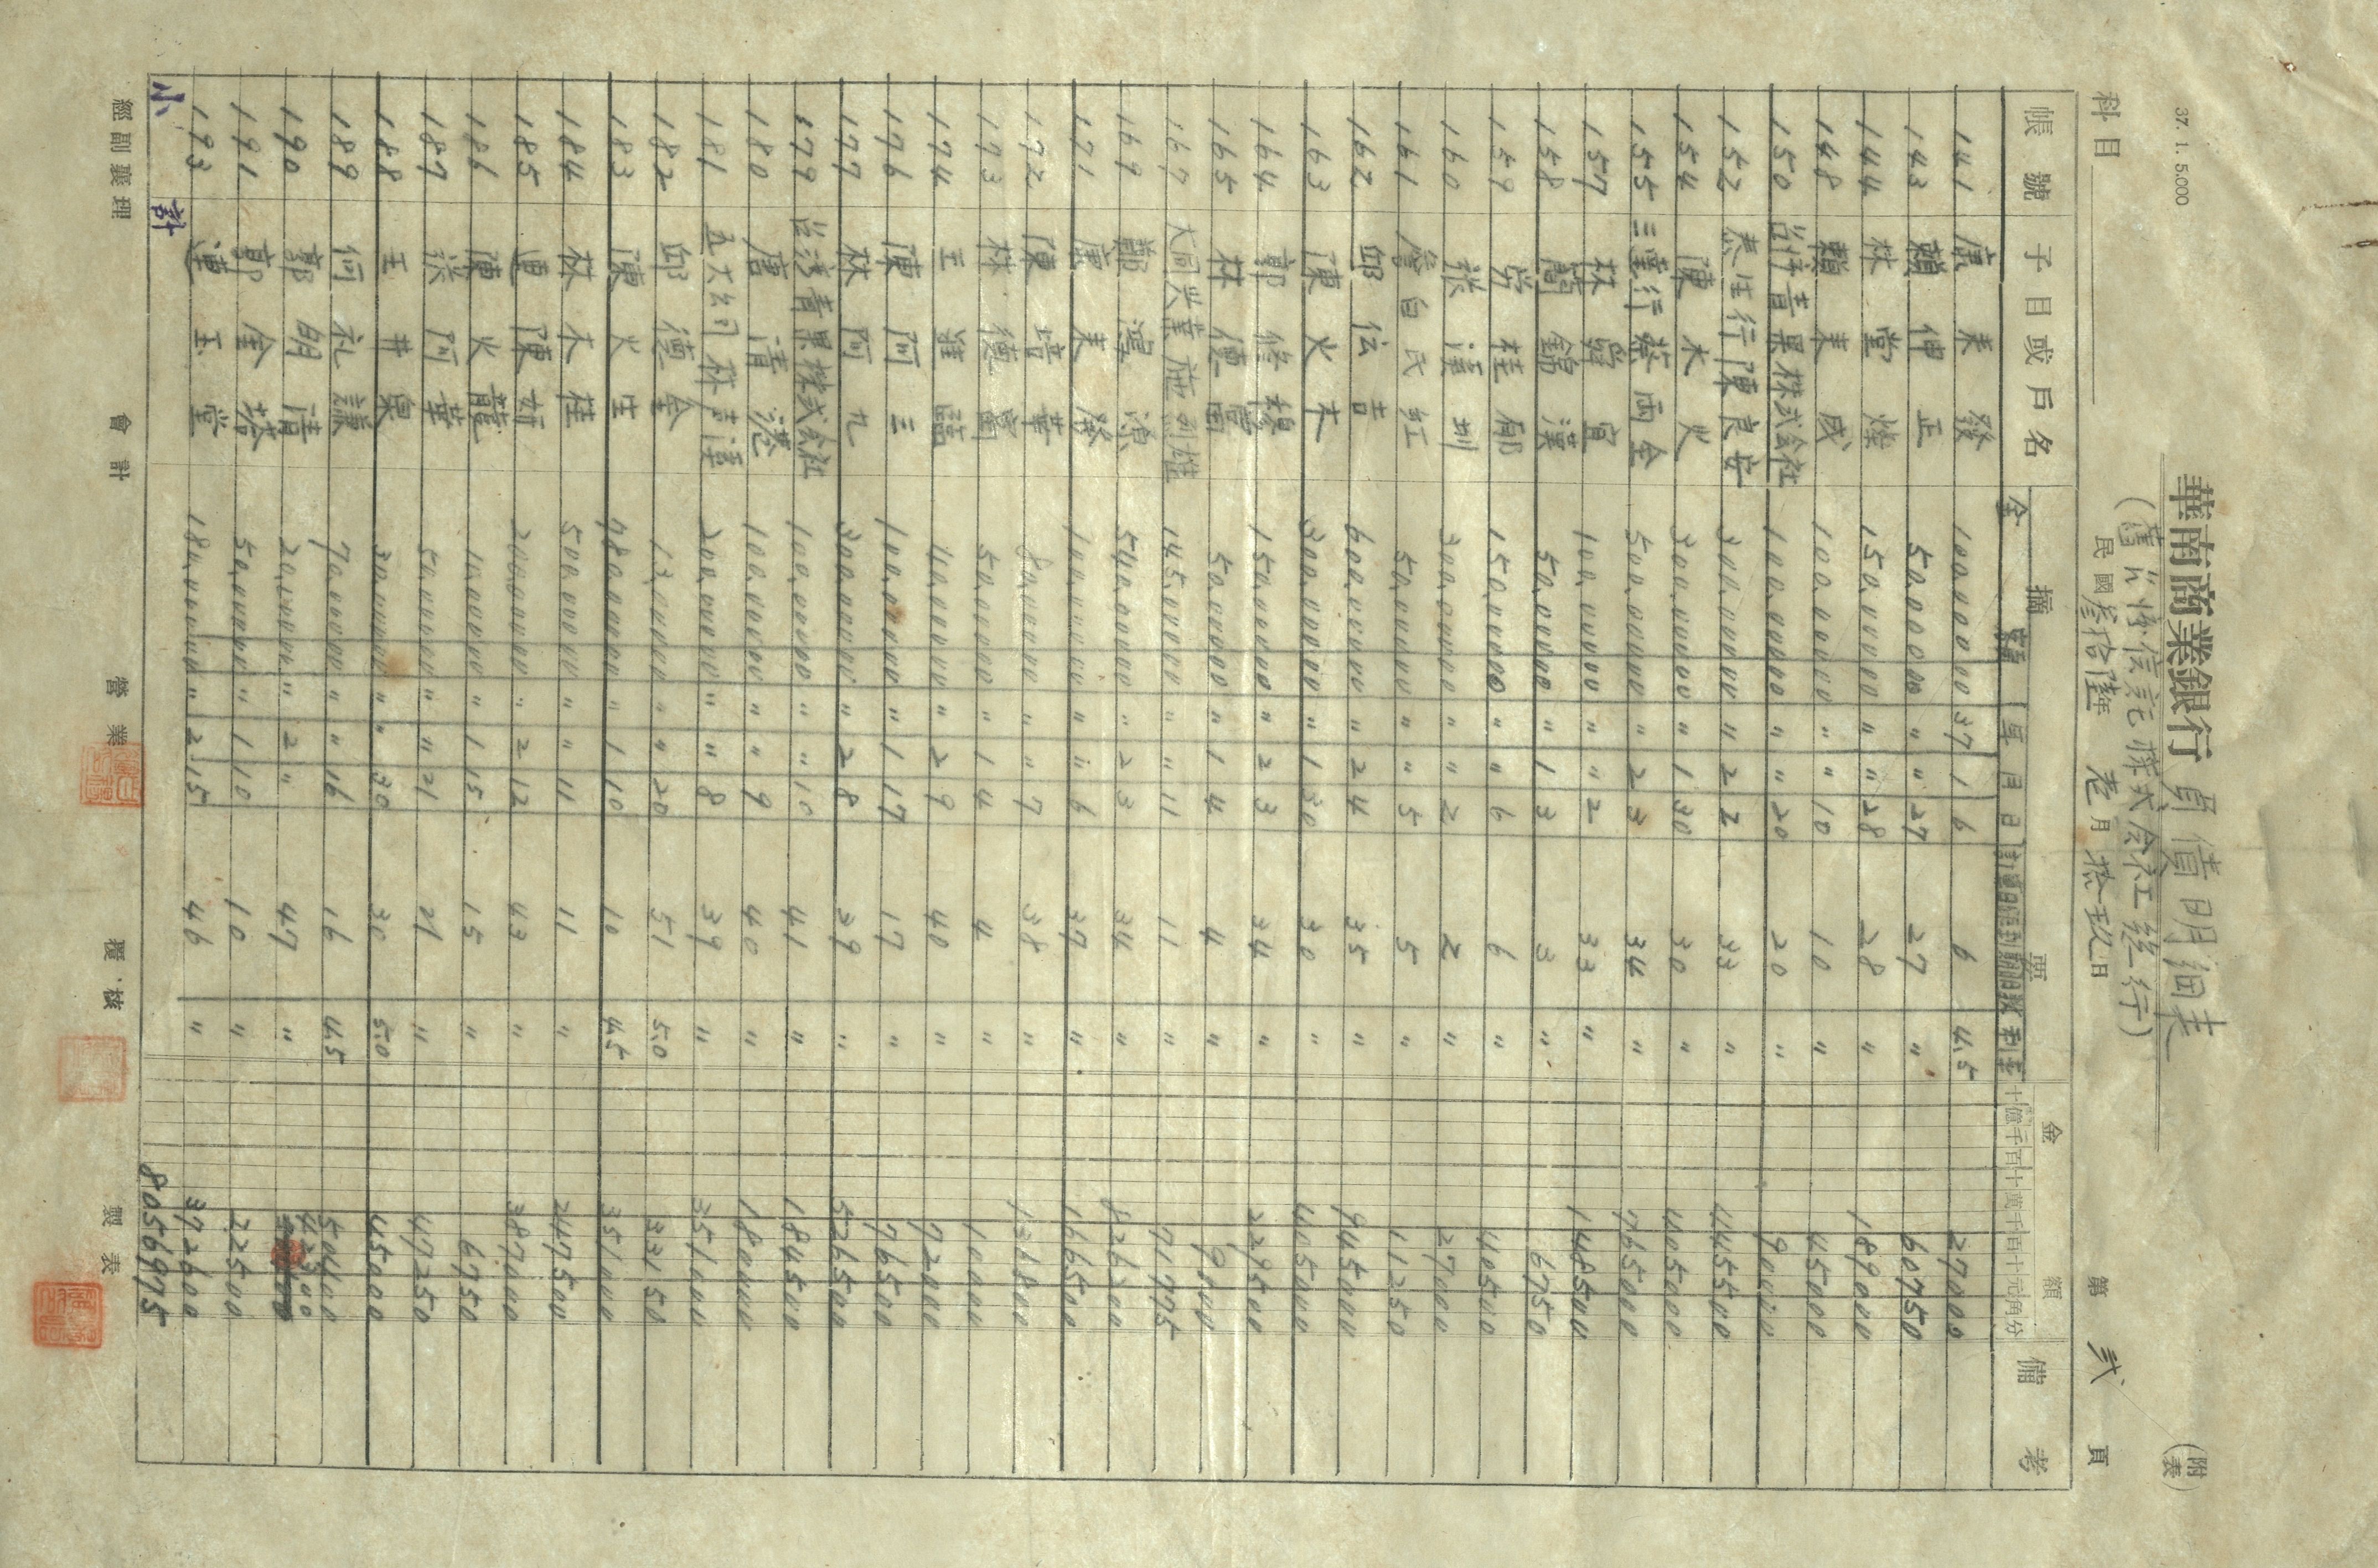 37. 1. 5.000
華南商業銀行 負債明細表
(附表)
(舊台灣信託株式会社総行)
科目
民國叁拾陸年 老月 拾玖日
第 弍 頁
帳號 子目或戶名 摘要 金額 備考
金額 年 月 日 利率 十億千百十萬千百十元角分
141 唐来發 100,000 00 37 1 6 6 4.5 27000
143 賴坤正 50,000 00 〃 〃 27 27 〃 60750
144 林堂燦 150,000 00 〃 〃 28 28 〃 189000
148 賴来成 100,000 00 〃 〃 10 10 〃 45000
150 台湾青果株式会社 100,000 00 〃 〃 20 20 〃 90000
152 泰生行陳良安 300,000 00 〃 2 2 33 〃 445500
154 陳木火 300,000 00 〃 1 30 30 〃 405000
155 三蓬行蔡両全 500,000 00 〃 2 3 34 〃 765000
157 林舜宜 100,000 00 〃 〃 2 33 〃 148500
158 簡錦漢 50,000 00 〃 1 3 3 〃 6750
159 桂郎 150,000 00 〃 〃 6 6 〃 40500
160 張漢圳 300,000 00 〃 〃 2 2 〃 27000
161 詹白氏紅 50,000 00 〃 〃 5 5 〃 11250
162 邱伝吉 600,000 00 〃 2 4 35 〃 945000
163 陳火木 300,000 00 〃 1 30 30 〃 405000
164 郭修穆 150,000 00 〃 2 3 34 〃 229500
165 林德富 50,000 00 〃 1 4 4 〃 9000
167 大同兴業施烈雄 145,000 00 〃 〃 11 11 〃 71775
169 鄭鴻源 540,000 00 〃 2 3 34 〃 826200
171 唐来發 100,000 00 〃 〃 6 37 〃 166500
172 陳培華 80,000 00 〃 〃 7 38 〃 136800
173 林德富 50,000 00 〃 1 4 4 〃 10000
174 王雅 40,000 00 〃 2 9 40 〃 72000
176 陳阿三 100,000 00 〃 1 17 17 〃 76500
177 林阿九 300,000 00 〃 2 8 39 〃 526500
179 台湾青果株式会社 100,000 00 〃 〃 10 41 〃 184500
180 唐清港 100,000 00 〃 〃 9 40 〃 180000
181 五大公司林吉漢 200,000 00 〃 〃 8 39 〃 351000
182 邱德金 13,000 00 〃 〃 20 51 5.0 33150
183 陳火生 780,000 00 〃 1 10 10 4.5 351000
184 林木桂 500,000 00 〃 〃 11 11 〃 247500
185 連陳 200,000 00 〃 2 12 43 〃 387000
186 陳火龍 10,000 00 〃 1 15 15 〃 6750
187 張阿華 50,000 00 〃 〃 21 21 〃 47250
188 王井泉 30,000 00 〃 〃 30 30 5.0 45000
189 何礼謙 70,000 00 〃 〃 16 16 4.5 50400
190 郭明清 20,000 00 〃 2 〃 47 〃 42300
191 郭金塔 50,000 00 〃 1 10 10 〃 22500
193 連玉堂 180,000 00 〃 2 15 46 〃 372600
小計 8056975
經副襄理 會計 營業 覆核 製表